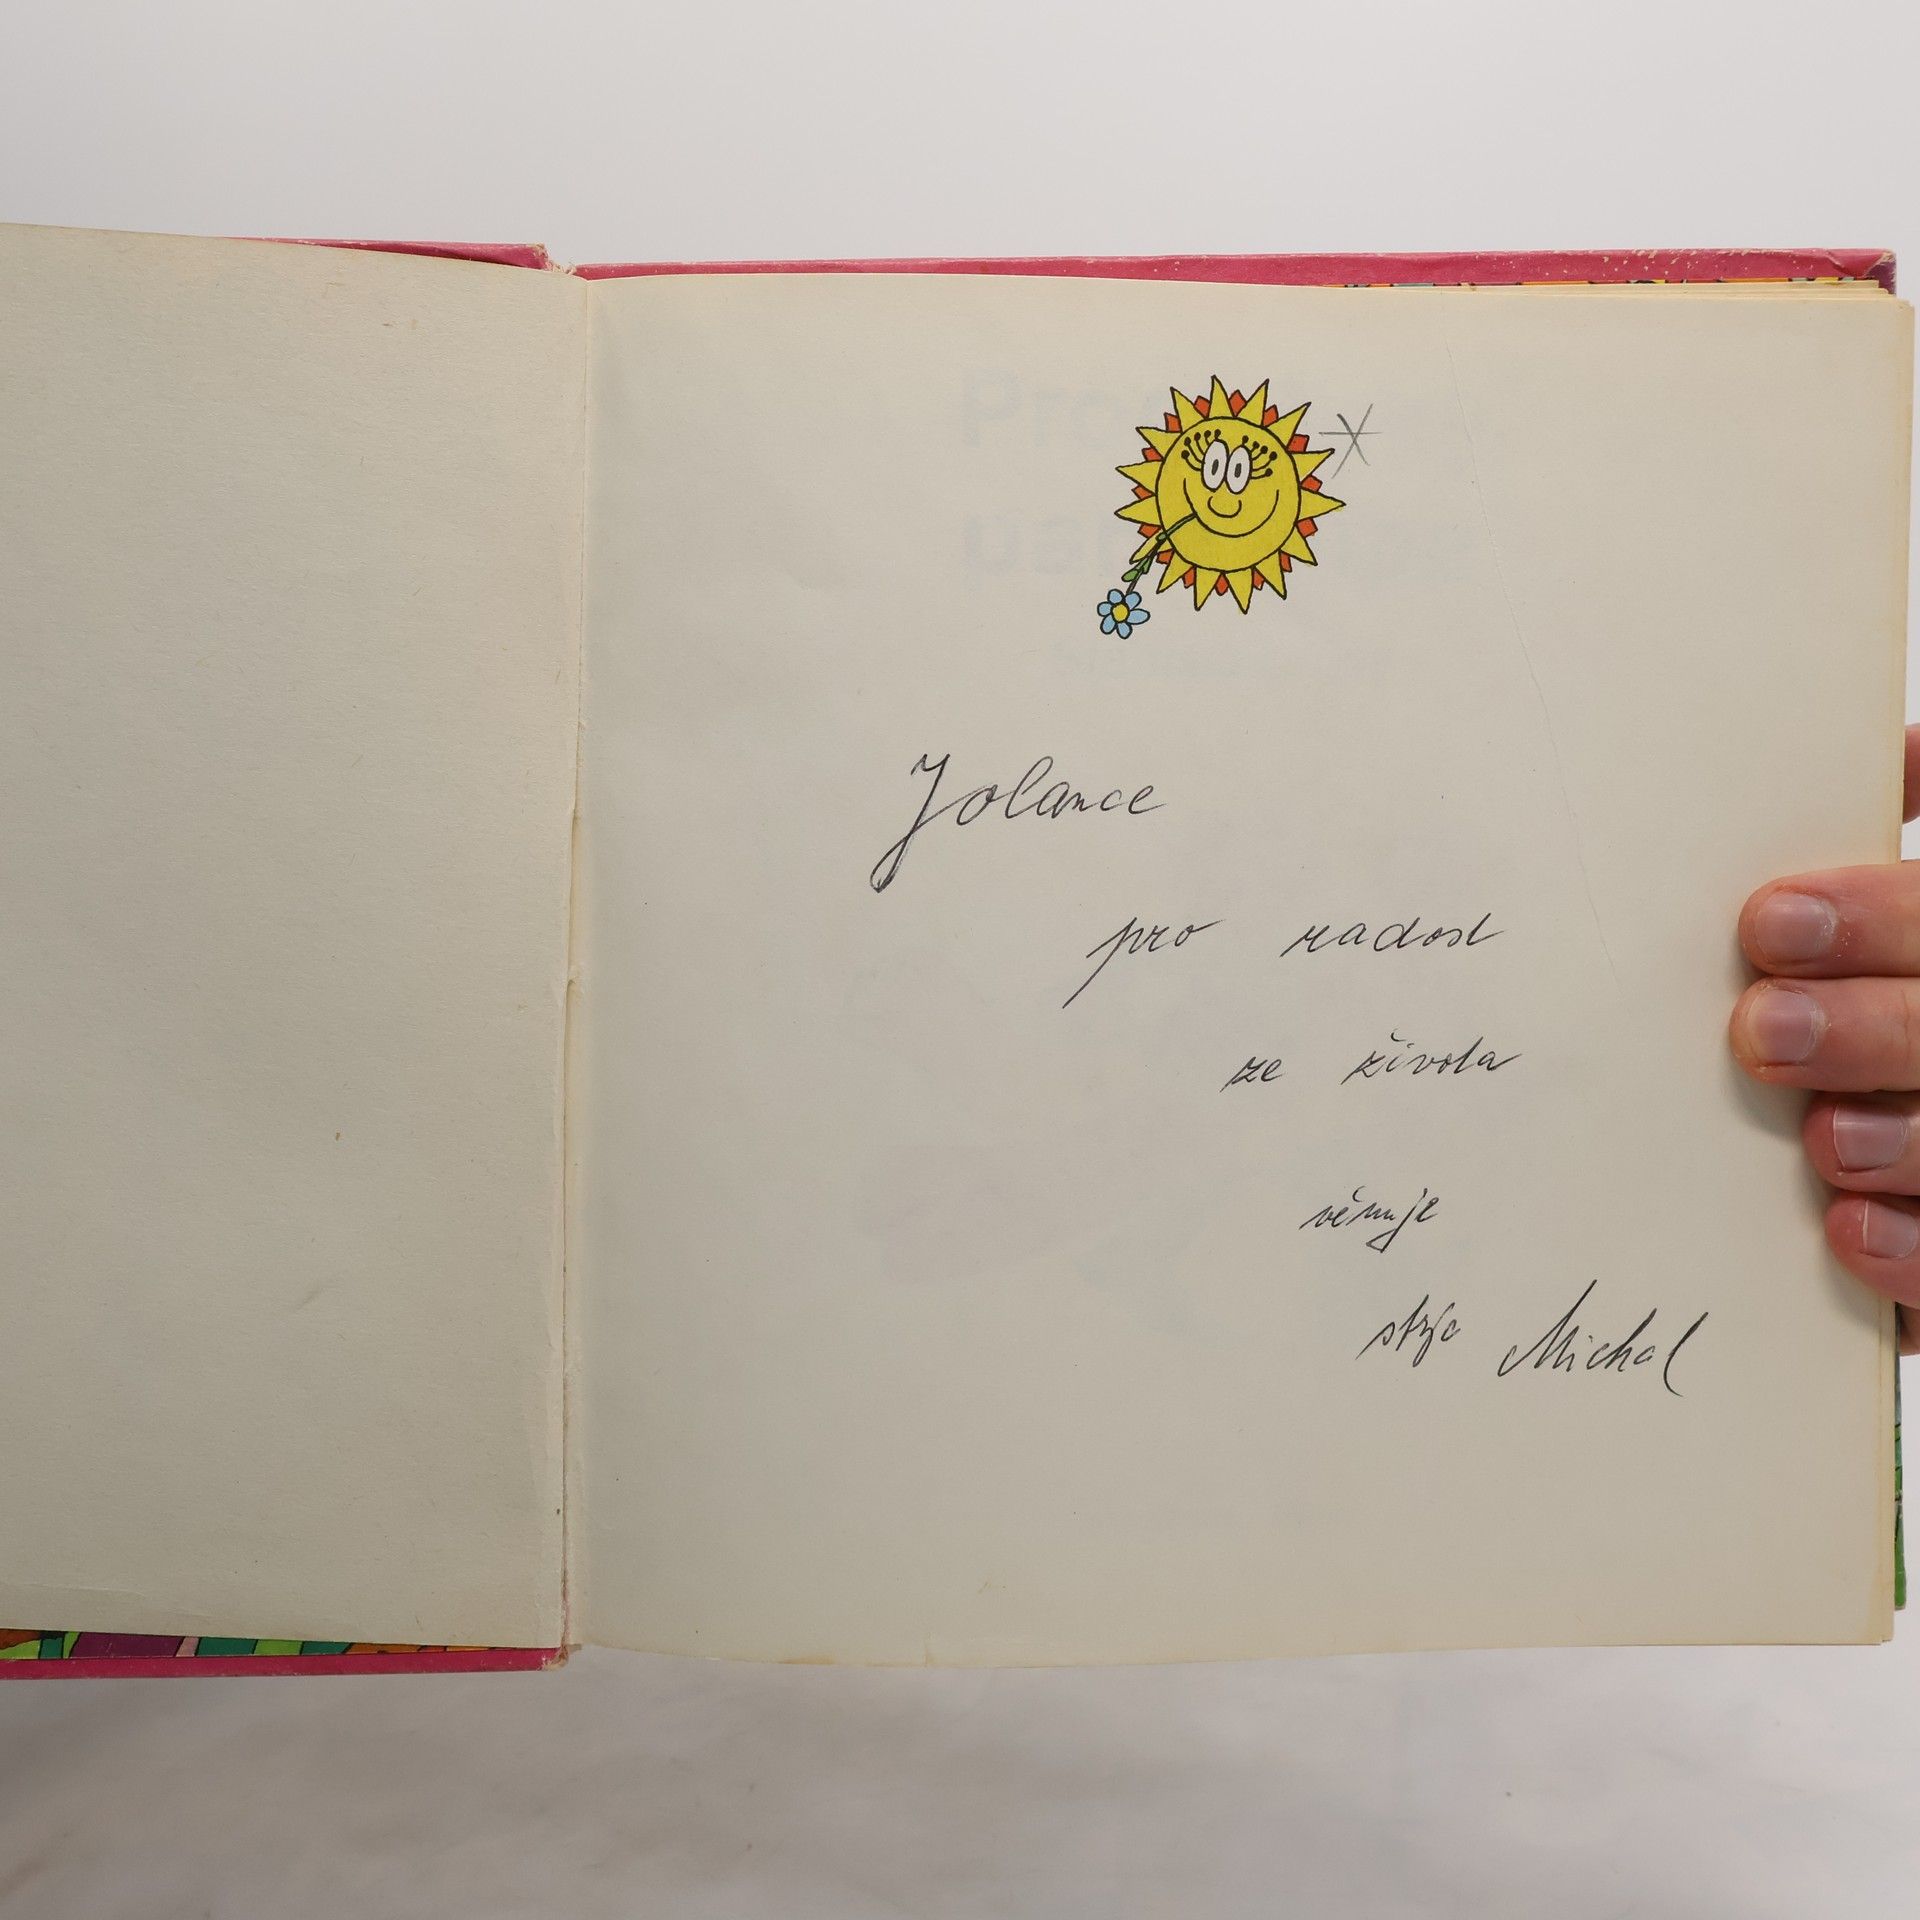 Jolance
pro radost
ze života
věnuje
strýc Michal